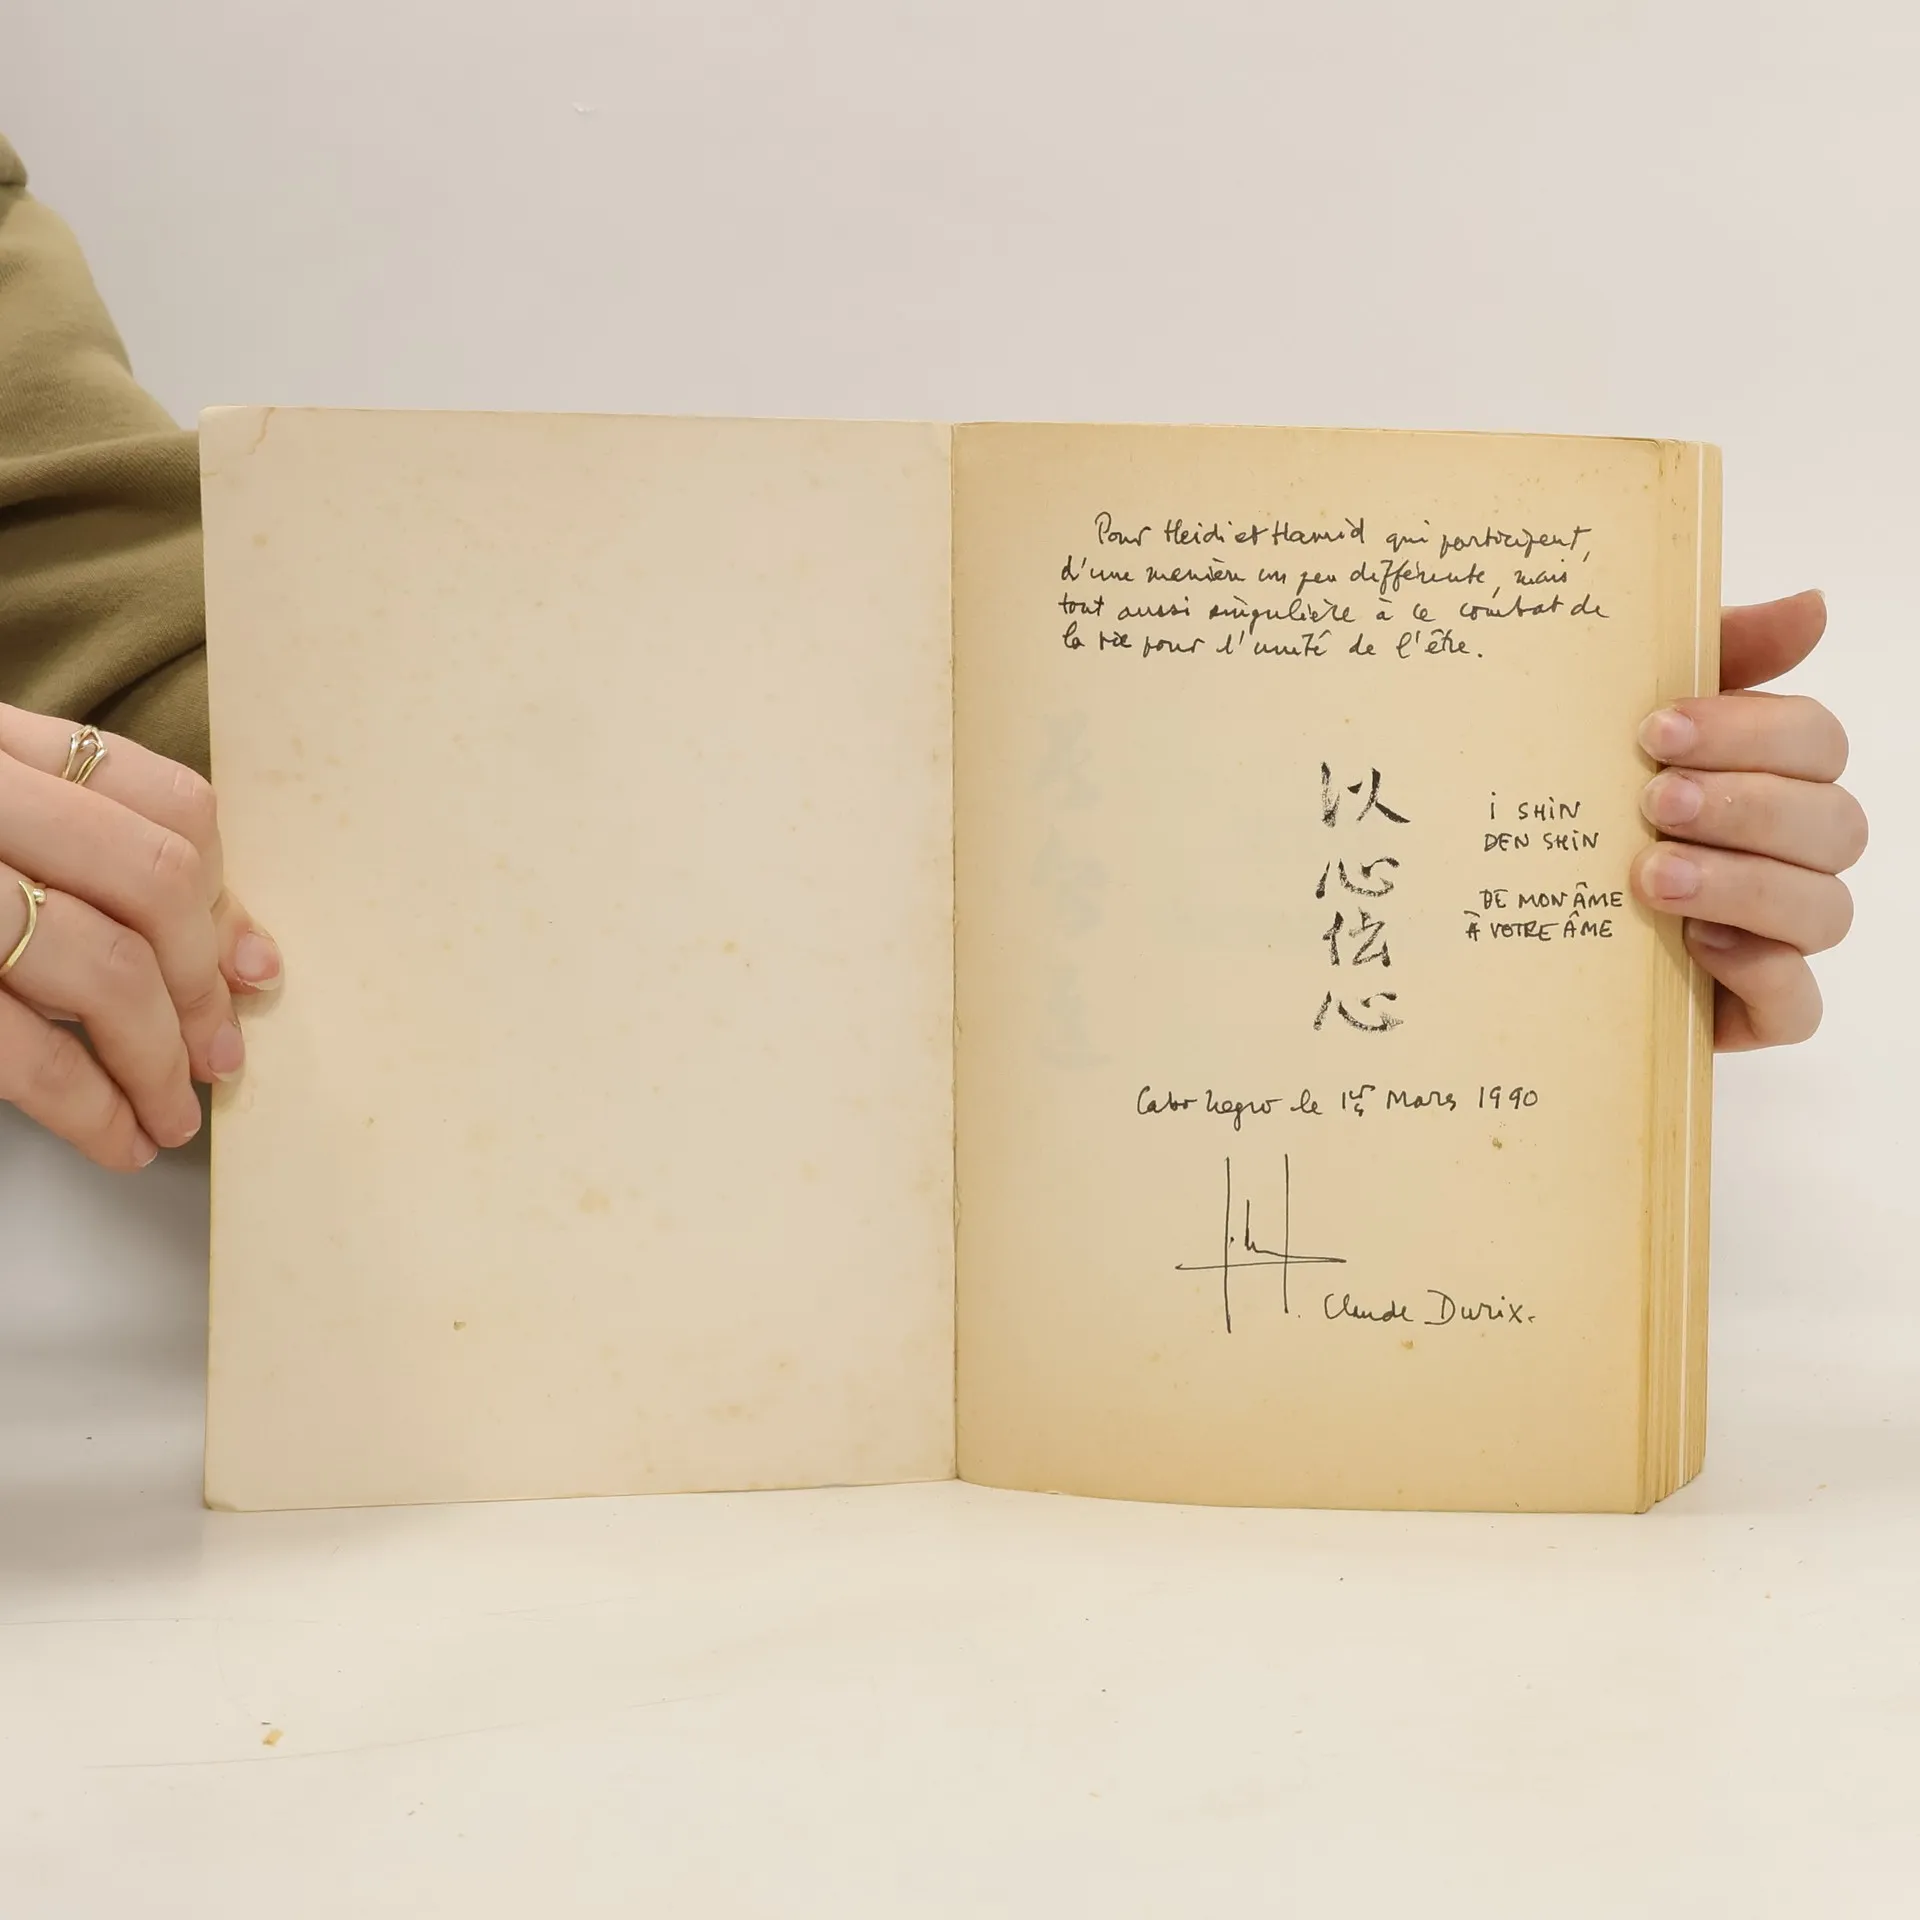 Pour Heidi et Hamid qui participent,
d'une manière un peu différente, mais
tout aussi singulière à ce combat de
la vie pour l'unité de l'être.
以
心
伝
心
i SHiN
DEN SHiN
DE MON ÂME
À VOTRE ÂME
Cabo Negro le 1er Mars 1990
Claude Durix.